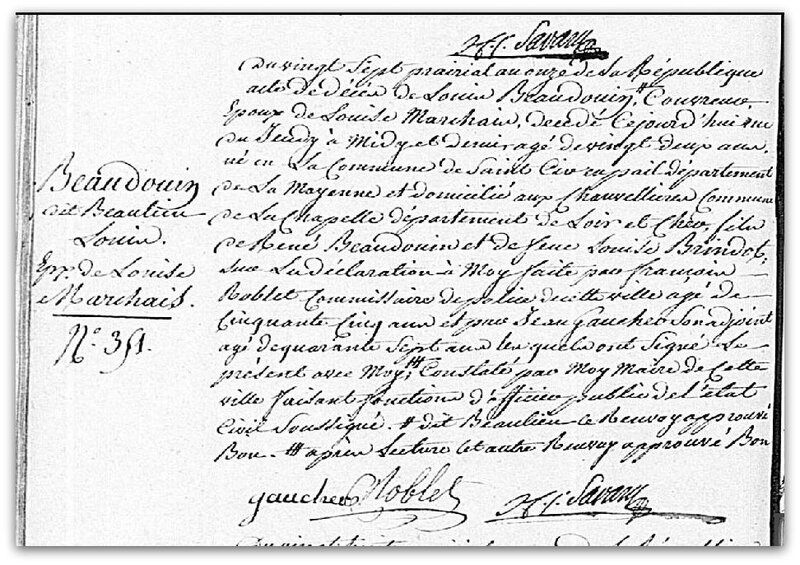 H. f. Savary
Du vingt Sept prairial an onze de la République
acte de décès de Louis Beaudouin, # Couvreur,
Epoux de Louise Marchais, décédé Cejourd'huis
du Jeudy à Midy et demi agé de vingt deux ans,
né en La Commune de Saint Cir département
de La Mayenne et domicilié aux Chauvellieres Commune
de La Chapelle département de Loir et Cher, fils
de René Beaudouin et de feue Louise Brindot,
Sur La déclaration à Moy faite par françois
Noblet Commissaire de police de cette ville agé de
Cinquante Cinq ans et par Jean Gaucher Son adjoint
agé de quarante Sept ans les quels ont Signé Le
présent avec Moy, ## Constaté par Moy Maire de Cette
ville faisant fonctions d'officier public de l'état
Civil Soussigné. # dit Beaulieu Ce Renvoy approuvé
Bon. ## après Lecture Cet autre Renvoy approuvé Bon
Beaudouin
dit Beaulieu
Louis.
Epx. de Louise
Marchais.
N.o 351.
gaucher Noblet H. f. Savary